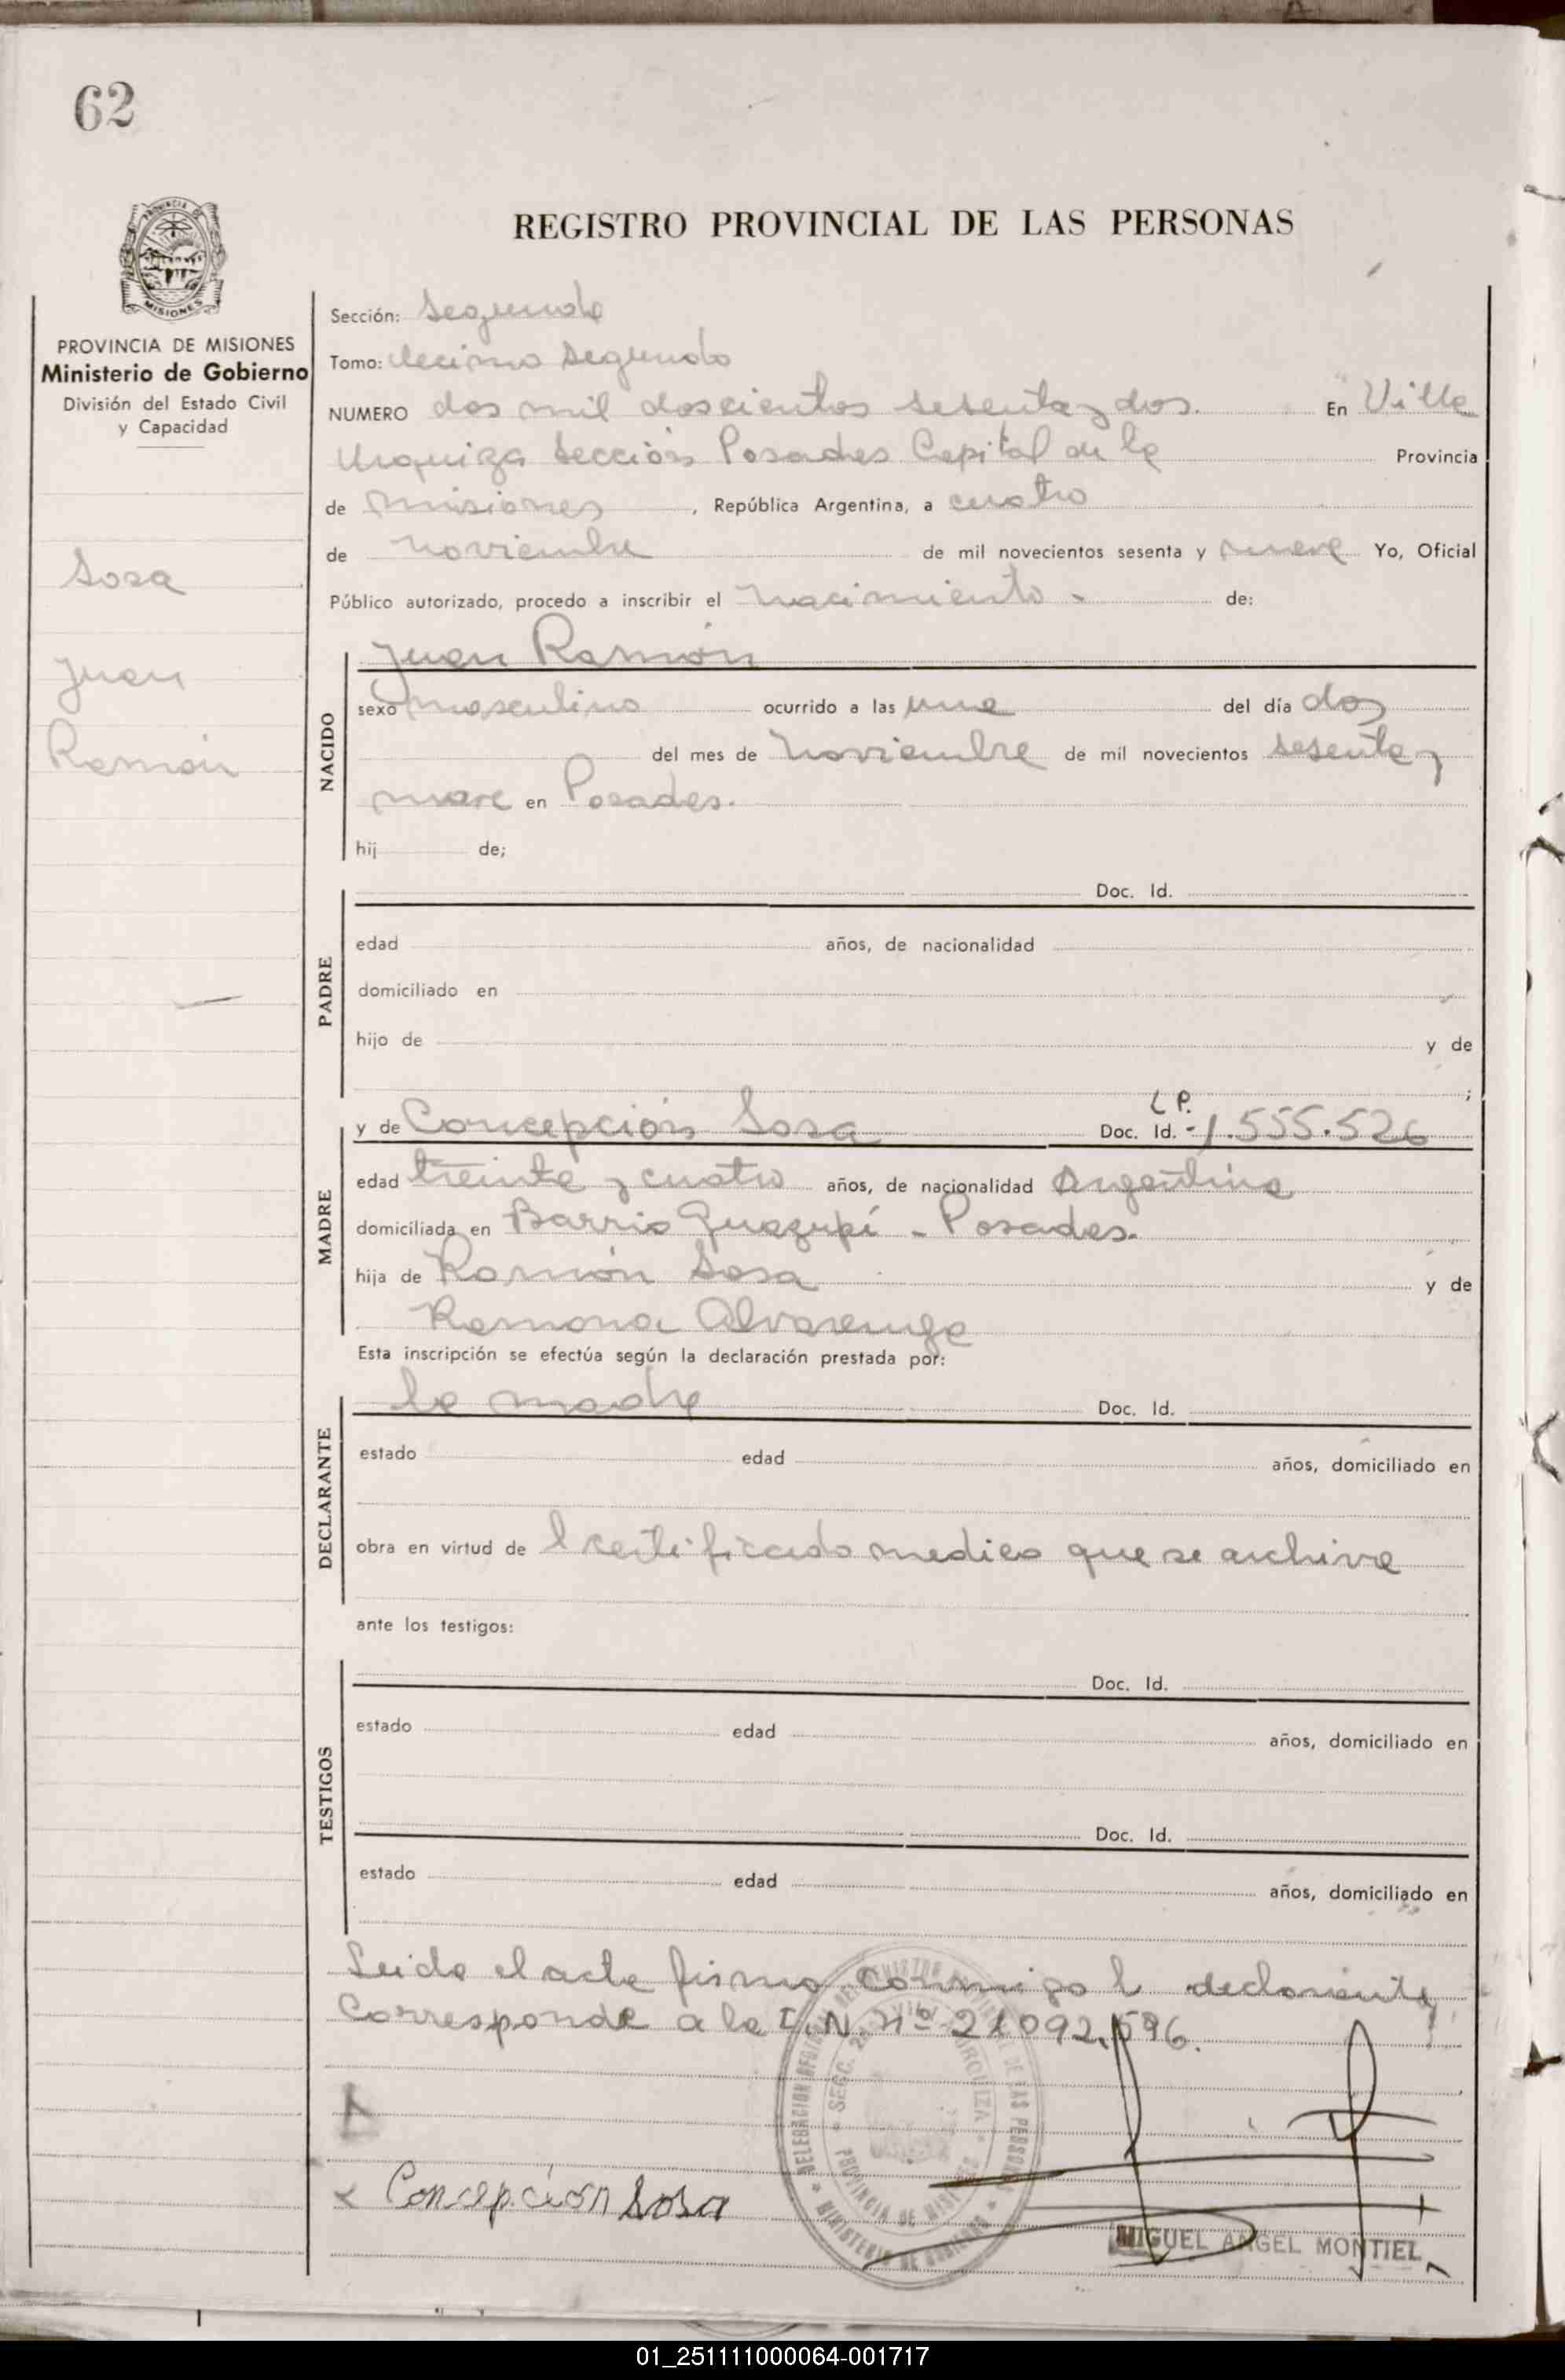 62
REGISTRO PROVINCIAL DE LAS PERSONAS
PROVINCIA DE MISIONES
Ministerio de Gobierno
División del Estado Civil
y Capacidad
Sosa
Juan
Ramón
Sección: Segunda
Tomo: decimo segundo
NUMERO dos mil doscientos sesenta y dos. En Villa
Urquiza Sección Posadas Capital de la Provincia
de Misiones, República Argentina, a cuatro
de noviembre de mil novecientos sesenta y nueve Yo, Oficial
Público autorizado, procedo a inscribir el nacimiento - de:
NACIDO
Juan Ramón
sexo masculino ocurrido a las una del día dos
del mes de noviembre de mil novecientos sesenta y
nueve en Posadas.
hij de;
PADRE
Doc. Id.
edad años, de nacionalidad
domiciliado en
hijo de y de
;
MADRE
L P.
y de Concepción Sosa Doc. Id. -1.555.526
edad treinta y cuatro años, de nacionalidad Argentina
domiciliada en Barrio Guazupí - Posadas.
hija de Ramón Sosa y de
Ramona Alvarenga
Esta inscripción se efectúa según la declaración prestada por:
DECLARANTE
la madre Doc. Id.
estado edad años, domiciliado en
obra en virtud de l certificado medico que se archiva
ante los testigos:
TESTIGOS
Doc. Id.
estado edad años, domiciliado en
Doc. Id.
estado edad años, domiciliado en
Leida el acta firma conmigo la declarante
Corresponde a la I.N. Nº 21092.596.
x Concepción Sosa
MIGUEL ANGEL MONTIEL
01_251111000064-001717